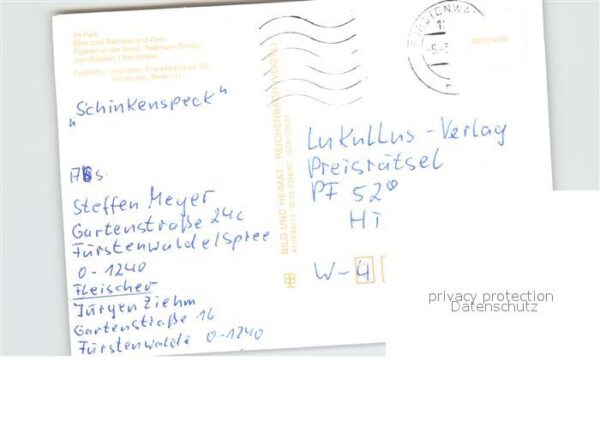 Im Park
Blick zum Rathaus und Dom
Eigaren an der Ernst-Thälmann-Straße
Juri-Gagarin-Oberschule
Lehmann, Frankfurt/Oder (3)
Deutscher, Berlin (1)
„Schinkenspeck“
Abs.
Steffen Meyer
Gartenstraße 24c
Fürstenwalde/Spree
O-1240
Fleischer
Jürgen Ziehm
Gartenstraße 16
Fürstenwalde O-1240
BILD UND HEIMAT · REICHENBACH (VOGTL)
Lukullus-Verlag
Preisrätsel
PF 520
HI
W-4
privacy protection
Datenschutz